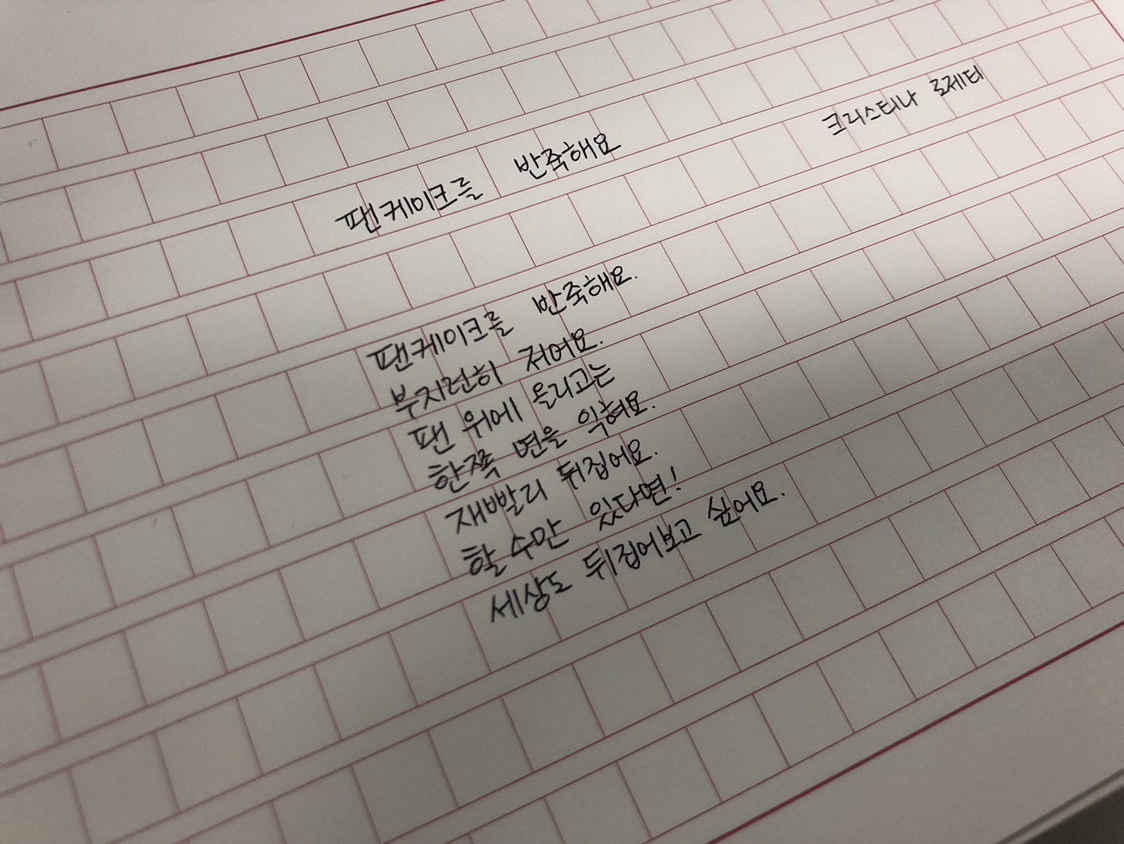 크리스티나 로제티
팬케이크를 반죽해요
팬케이크를 반죽해요.
부지런히 저어요.
팬 위에 올리고는
한쪽 면을 익혀요.
재빨리 뒤집어요.
할 수만 있다면!
세상도 뒤집어보고 싶어요.